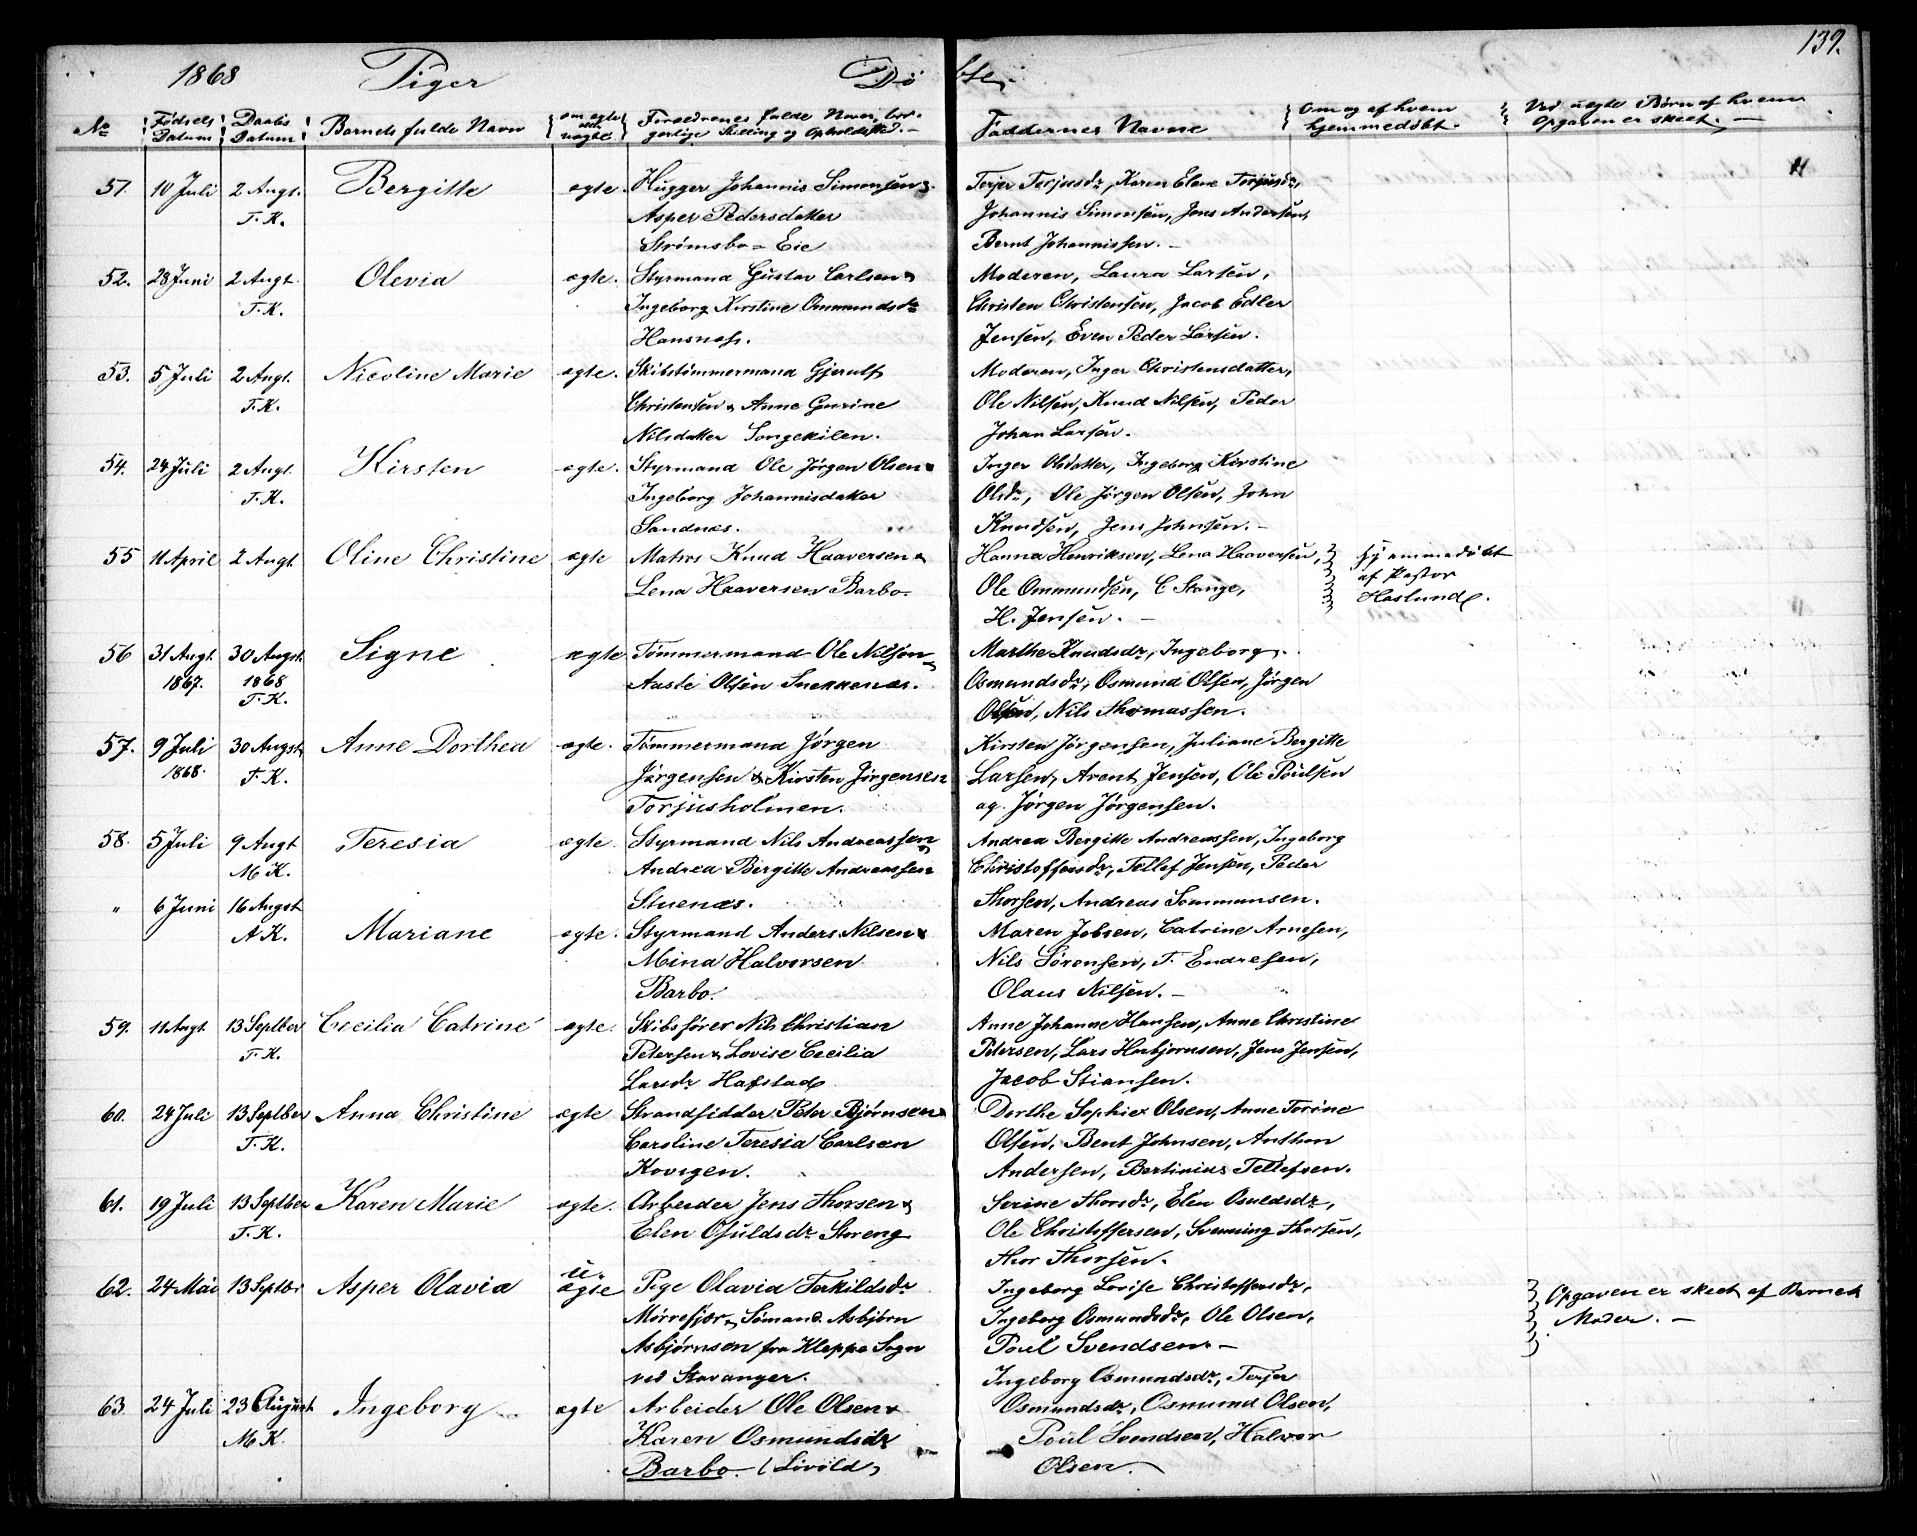 139.
1868 Piger Døbte.
No Fødsels Datum Daabs Datum Barnets fulde Navn om ægte eller uægte Forældrenes fulde Navn, borgerlige Stilling og Opholdssted. Faddernes Navne Om og af hvem hjemmedøbt. Ved uægte Børn af hvem Opgaven er skeet.
51. 10 Juli 2 Augt. Bergitte ægte. Hugger Johannis Simonsen & Terjer Terjusdr, Karen Elene Terjusdr,
T. K. Asper Pedersdatter Johannis Simonsen, Jens Andersen,
Strømsbo Eie Bernt Johannissen.
52. 28 Juni 2 Augt. Olevia ægte. Styrmand Gustav Carlsen & Moderen, Laura Larsen,
T. K. Ingeborg Kirstine Ommundsdr Christen Christensen, Jacob Edler
Hansnæs. Jensen, Even Peder Larsen.
53. 5 Juli 2 Augt. Nicoline Marie ægte. Skibstømmermand Gjerulf Moderen, Inger Christensdatter,
T. K. Christensen & Anne Gurine Ole Nilsen, Knud Nilsen, Peder
Nilsdatter Songekilen. Johan Larsen.
54. 24 Juli 2 Augt. Kirsten ægte. Styrmand Ole Jørgen Olsen & Inger Olsdatter, Ingeborg Kirstine
T. K. Ingeborg Johannisdatter Olsdr, Ole Jørgen Olsen, John
Sandnæs. Knudsen, Jens Johnsen.
55 11 April 2 Augt. Oline Christine ægte Matros Knud Haaversen & Hanna Henriksen, Lena Haaversen, Hjemmedøbt
Lena Haaversen Barbo. Ole Ommundsen, C Stange, af Pastor
H. Jensen. Haslund.
56 31 Augt. 30 Augst. Signe ægte Tømmermand Ole Nilsen & Marthe Knudsdr, Ingeborg
1867. 1868 Aaste Olsen Snekkenæs. Osmundsdr, Osmund Olsen, Jørgen
T. K. Olsen, Nils Thomassen.
57. 9 Juli 30 Augst. Anne Dorthea ægte. Tømmermand Jørgen Kirsten Jørgensen, Juliane Bergitte
1868. T. K. Jørgensen & Kirsten Jørgensen Larsen, Arent Jensen, Ole Poulsen
Torjusholmen. og Jørgen Jørgensen.
58. 5 Juli 9 Augt Teresia ægte. Styrmand Nils Andreassen & Andrea Bergitte Andreassen, Ingeborg
M K. Andrea Bergitte Andreassen Christoffersdr, Tellef Jensen, Peder
" 6 Juni 16 Augst Stuenæs. Thorsen, Andreas Sommunsen.
A K. Mariane ægte. Styrmand Anders Nilsen & Maren Jobsen, Catrine Arnesen,
Mina Halvorsen Nils Sørensen, T. Endresen,
Barbo. Olaus Nilsen.
59. 11 Augt. 13 Septber Cecilia Catrine ægte. Skibsfører Nils Christian Anne Johanne Hansen, Anne Christine
T. K. Petersen & Lovise Cecilia Petersen, Lars Herbjornsen, Jens Jensen,
Larsdr Hafstad Jacob Stiansen.
60. 24 Juli 13 Septber Anna Christine ægte Strandsidder Peter Bjørnsen & Dorthe Sophie Olsen, Anne Torine
T. K. Caroline Teresia Carlsen Olsen, Bent Johnsen, Anthon
Kovigen. Andersen, Bertinius Tellefsen.
61. 19 Juli 13 Septber Karen Marie ægte. Arbeider Jens Thorsen & Serine Thorsdr, Elen Osuldsdr,
T. K. Elen Osuldsdr Storeng Ole Christoffersen, Svenning Thorsen,
Thor Thorsen.
62. 24 Mai 13 Septbr Asper Olavia uægte Pige Olavia Terkildsdr Ingeborg Lovise Christoffersdr, Opgaven er skeet af Barnets
Mørrefjær, Sømand Asbjørn Ingeborg Osmundsdr, Ole Olsen, Moder.
Asbjørnsen fra Kleppe Sogn Poul Svendsen.
ved Stavanger. Ingeborg Osmundsdr, Terjer
63. 24 Juli 23 August Ingeborg ægte Arbeider Ole Olsen & Osmundsdr, Osmund Olsen,
M K. Karen Osmundsdr Poul Svendsen, Halvor
Barbo. (Løvold) Olsen.